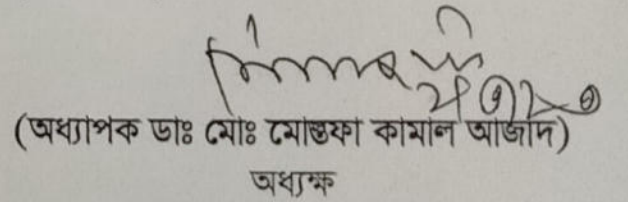 (অধ্যাপক ডাঃ মোঃ মোস্তফা কামাল আজাদ)
অধ্যক্ষ